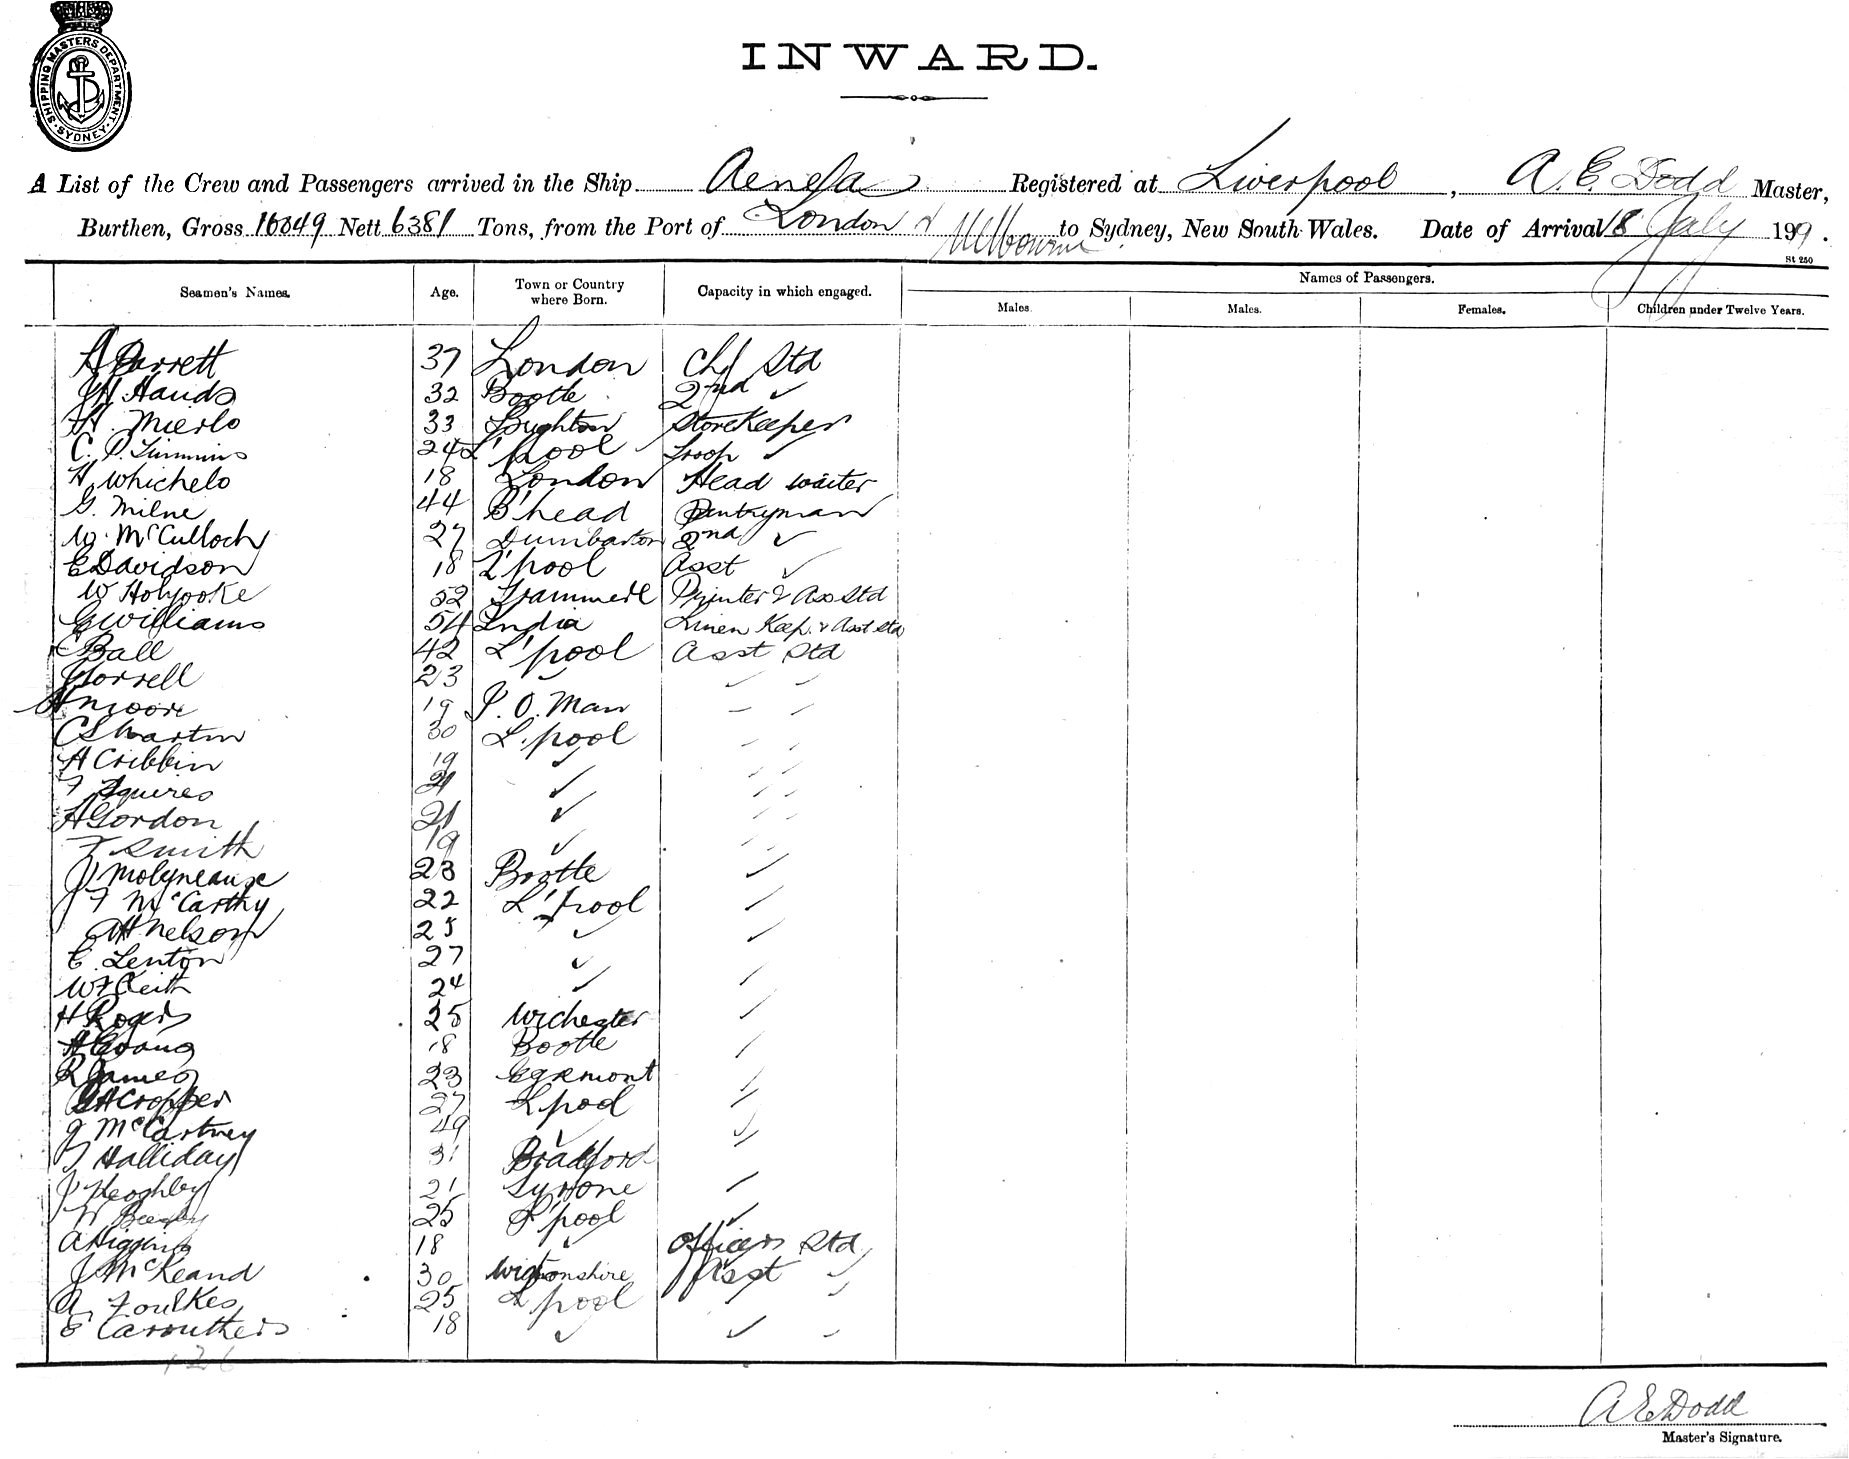 SHIPPING MASTERS DEPARTMENT
SYDNEY
INWARD.
A List of the Crew and Passengers arrived in the Ship Aeneas Registered at Liverpool, A. E. Dodd Master,
Burthen, Gross 10049 Nett 6381 Tons, from the Port of London & Melbourne to Sydney, New South Wales. Date of Arrival 18 July 191
St 250
Seamen's Names. Age. Town or Country where Born. Capacity in which engaged. Names of Passengers.
Males. Males. Females. Children under Twelve Years.
Parrett 37 London Chf Std
Hands 32 Bootle 2nd ✓
H. Mierlo 33 Storekeeper
C. P. Timmins 24 L'pool Troop ✓
H Whichelo 18 London Head waiter
G. Milne 44 B'head Pantryman
W. McCulloch 27 Dumbarton 2nd ✓
E Davidson 18 L'pool Asst ✓
W Holyoake 52 Printer & Ass Std
G Williams 54 India Linen Keep. & Asst Std
C Ball 42 L'pool Asst Std
J Sorrell 23 ✓ ✓ ✓
H Moore 19 I. O. Man
C S Martin 30 L'pool
H Cribbin 19 ✓
F Squires 21 ✓
H Gordon 21 ✓
F Smith 19 ✓
J Molyneause 23 Bootle ✓
J F McCarthy 22 L'pool ✓
A H Nelson 25 ✓ ✓
E. Lenton 27 ✓
W F Keith 24 ✓ ✓
H Rogers 25 Wichester ✓
H Evans 18 Bootle ✓
R James 23 Egremont ✓
G H Cropper 27 Lpool ✓
J McCartney 49 ✓ ✓
T Halliday 31 Bradford
J Keoghley 21 Tyrone ✓
W Beesley 25 L'pool ✓
A Higgins 18 ✓ Officers Std
J McKeand 30 Wigtonshire Asst ✓
A Foulkes 25 Lpool
E Carruthers 18 ✓ ✓ ✓
126
A E Dodd
Master's Signature.